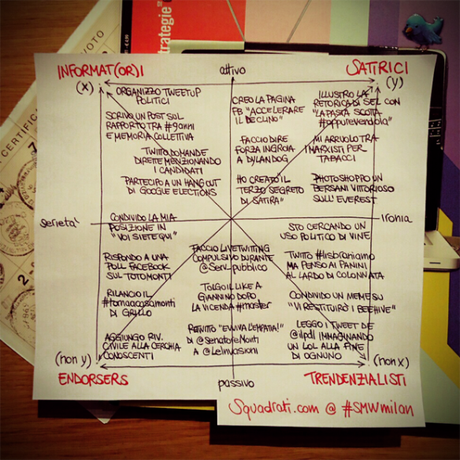 strategie"
INFORMAT(OR)I
attivo
SATIRICI
(x)
(y)
ORGANIZZO TWEETUP
POLITICI
SCRIVO UN POST SUL
RAPPORTO TRA #90ANNI
E MEMORIA COLLETTIVA
TWITTO DOMANDE
DIRETTE MENZIONANDO
I CANDIDATI
PARTECIPO A UN HANGOUT
DI GOOGLE ELECTIONS
CREO LA PAGINA
FB "ACCELERARE
IL DECLINO"
FACCIO DIRE
FORZA INGROIA
A DYLAN DOG
HO CREATO IL
TERZO SEGRETO
DI SATIRA"
ILLUSTRO LA
RETORICA DI SEL CON
"LA PASTA SCOTTA
MI ARRUOLO TRA
I MARXISTI PER
TABACCI
PHOTOSHOPPO UN
BERSANI VITTORIOSO
SULL'EVEREST
serietà
ironia
CONDIVIDO LA MIA
POSIZIONE IN
"VOI SIETE QUI"
RISPONDO A UNA
POLL FACEBOOK
SUL TOTOMONTI
RILANCIO IL
#tornaacasamonti
DI GRILLO
AGGIUNGO RIV.
CIVILE ALLA CERCHIA
CONOSCENTI
FACCIO LIVETWITTING
COMPULSIVO DURANTE
@Serv_pubblico
TOLGO IL LIKE A
GIANNINO DOPO
LA VICENDA #master
RETWITTO "EVVIVA L'EMPATIA!"
DI @senatoreMonti
A @LeInvasioni
STO CERCANDO UN
USO POLITICO DI VINE
TWITTO #lisbraniamo
MA PENSO AI PANINI
AL LARDO DI COLONNATA
CONDIVIDO UN MEME SU
"VI RESTITUIRÒ I BEEHIVE"
LEGGO I TWEET DE
@ilpdl IMMAGINANDO
UN LOL ALLA FINE
DI OGNUNO
(non y)
(non x)
ENDORSERS
passivo
TRENDENZIALISTI
Squadrati.com @ #SMWmilan